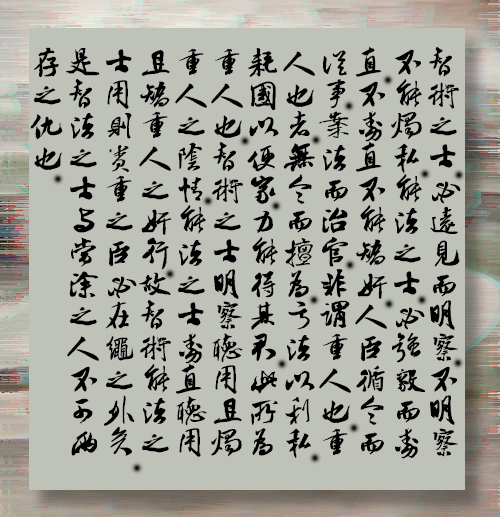 智術之士必遠見而明察不明察
不能燭私能法之士必強毅而勁
直不勁直不能矯奸人臣循令而
從事案法而治官非謂重人也重
人也者無令而擅為亏法以利私
耗國以便家力能得其君此所為
重人也智術之士明察聽用且燭
重人之陰情能法之士勁直聽用
且矯重人之奸行故智術能法之
士用則貴重之臣必在繩之外矣
是智法之士与當涂之人不可兩
存之仇也